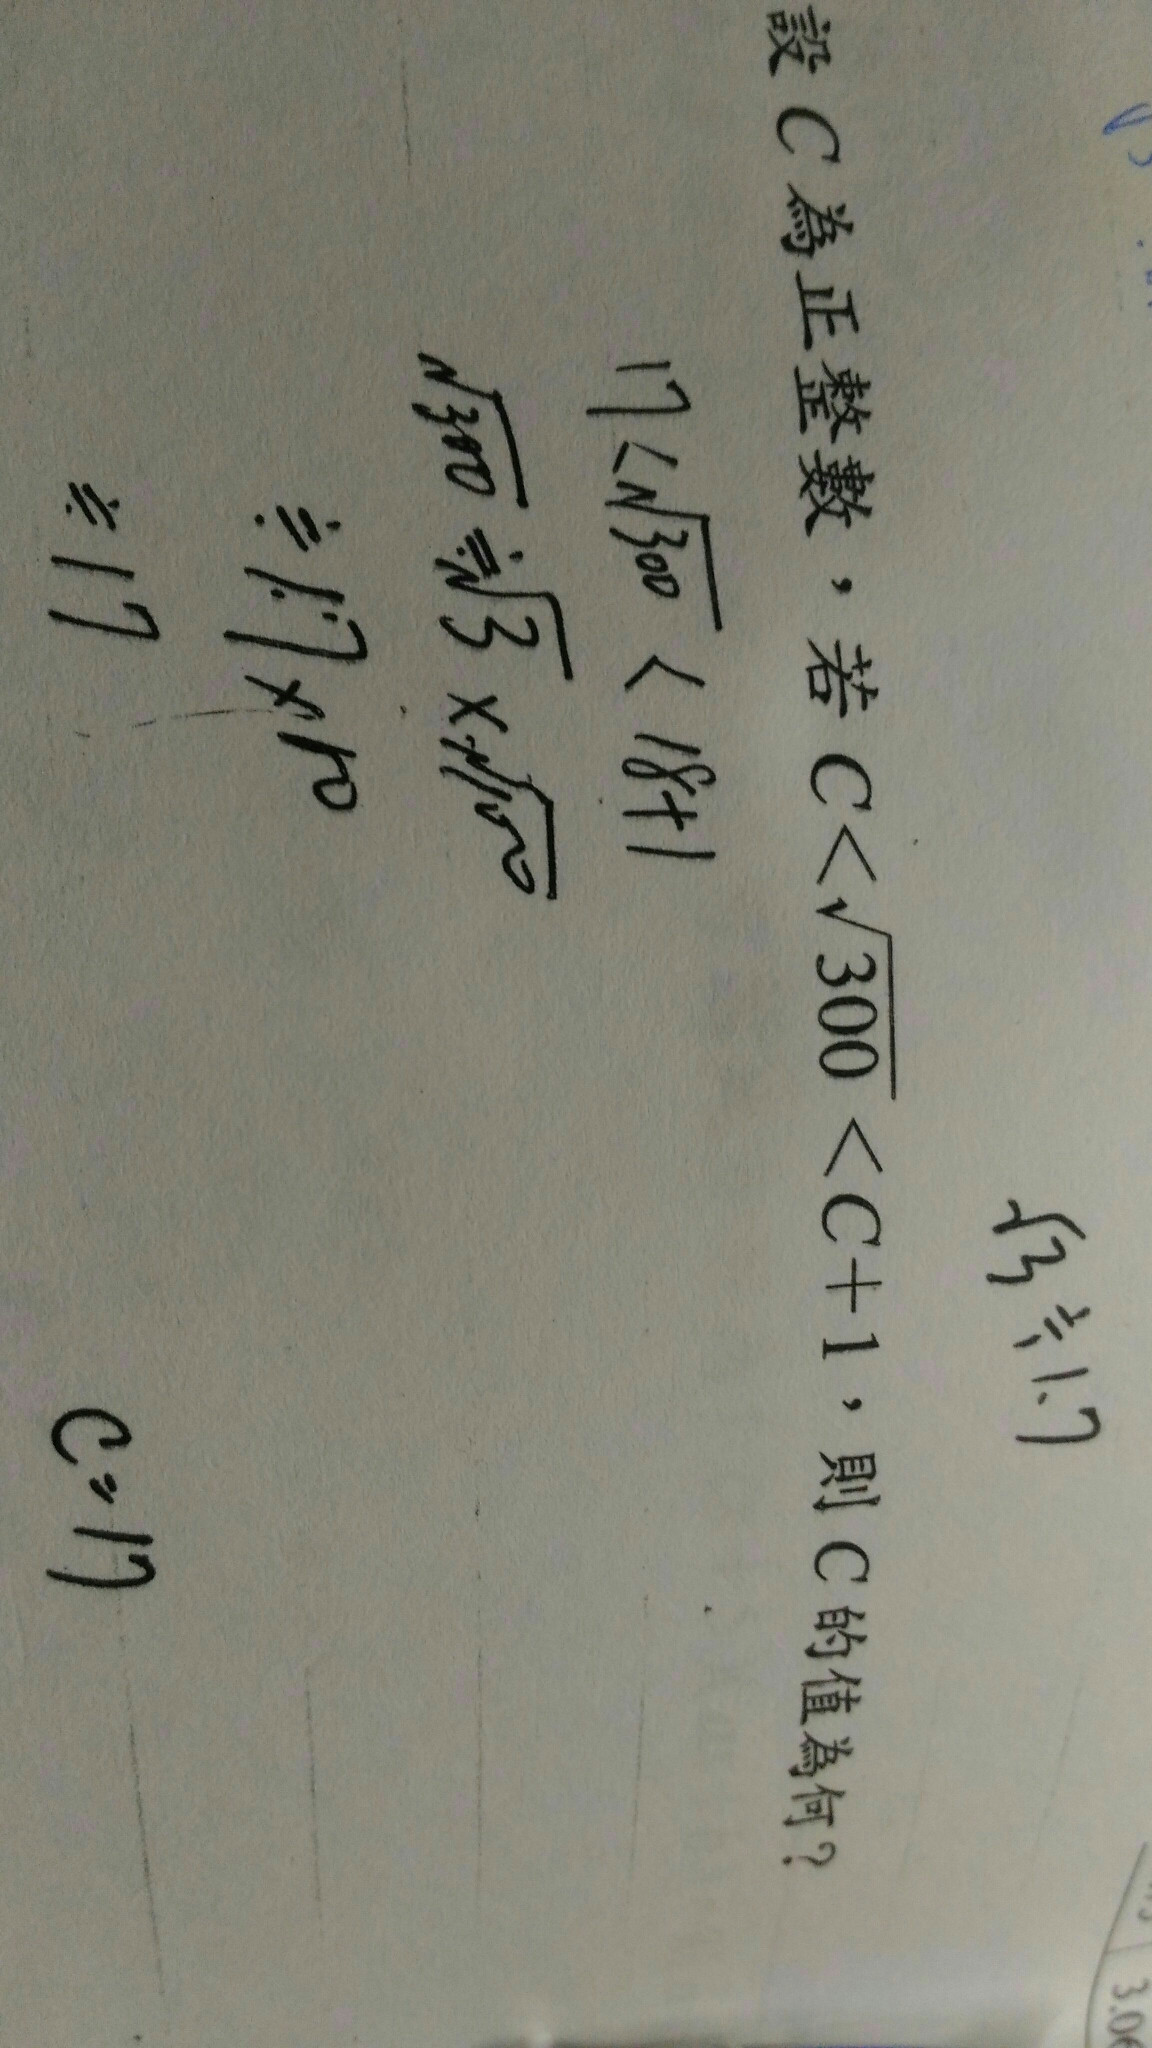 √3≒1.7
設C為正整數，若C<√300<C+1，則C的值為何？
17<√300<18+1
√300≒√3×√100
≒1.7×10
≒17
C=17
3.06